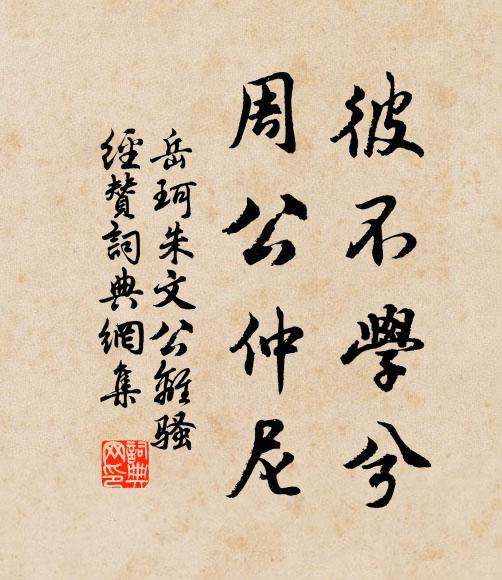 彼不學兮
周公仲尼
岳珂朱文公離騷
經贊詞典網集
詞典網印